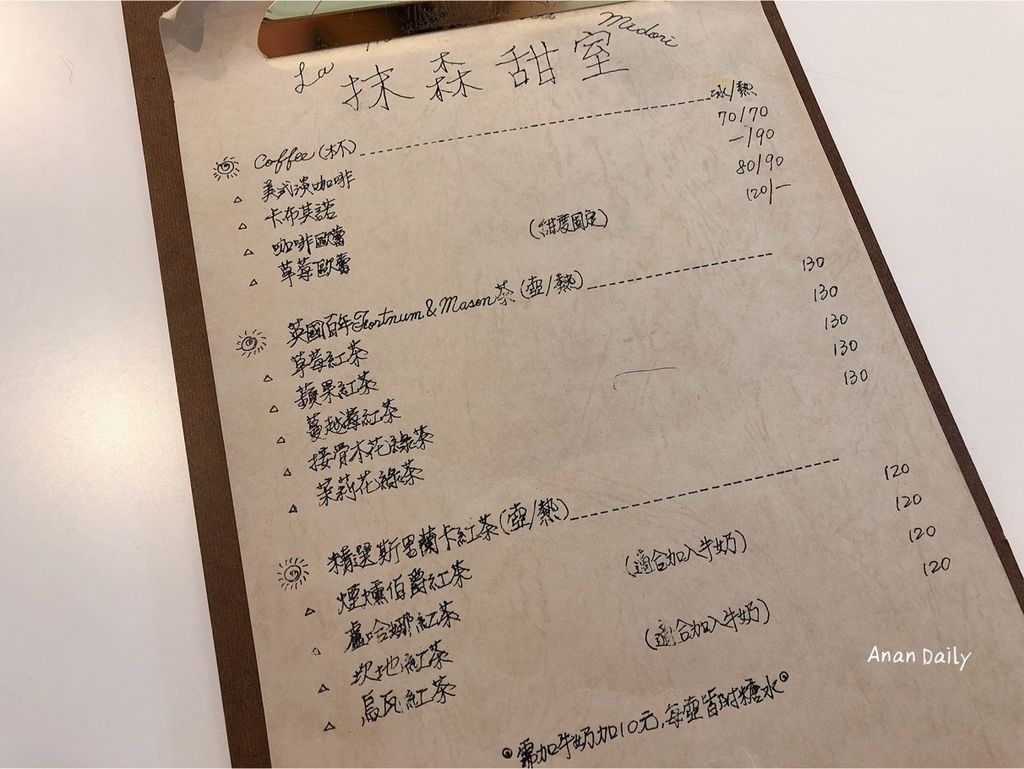 La Midori
抹森甜室
冰/熱
Coffee (杯)
美式淡咖啡 70/70
卡布其諾 -/90
咖啡歐蕾 80/90
草莓歐蕾 (甜度固定) 120/-
英國百年Fortnum & Mason茶 (壺/熱)
草莓紅茶 130
蘋果紅茶 130
蔓越莓紅茶 130
接骨木花綠茶 130
茉莉花綠茶 130
精選斯里蘭卡紅茶 (壺/熱)
煙燻伯爵紅茶 120
盧哈娜紅茶 (適合加入牛奶) 120
坎地紅茶 120
烏瓦紅茶 (適合加入牛奶) 120
需加牛奶加10元,每壺皆附糖水
Anan Daily